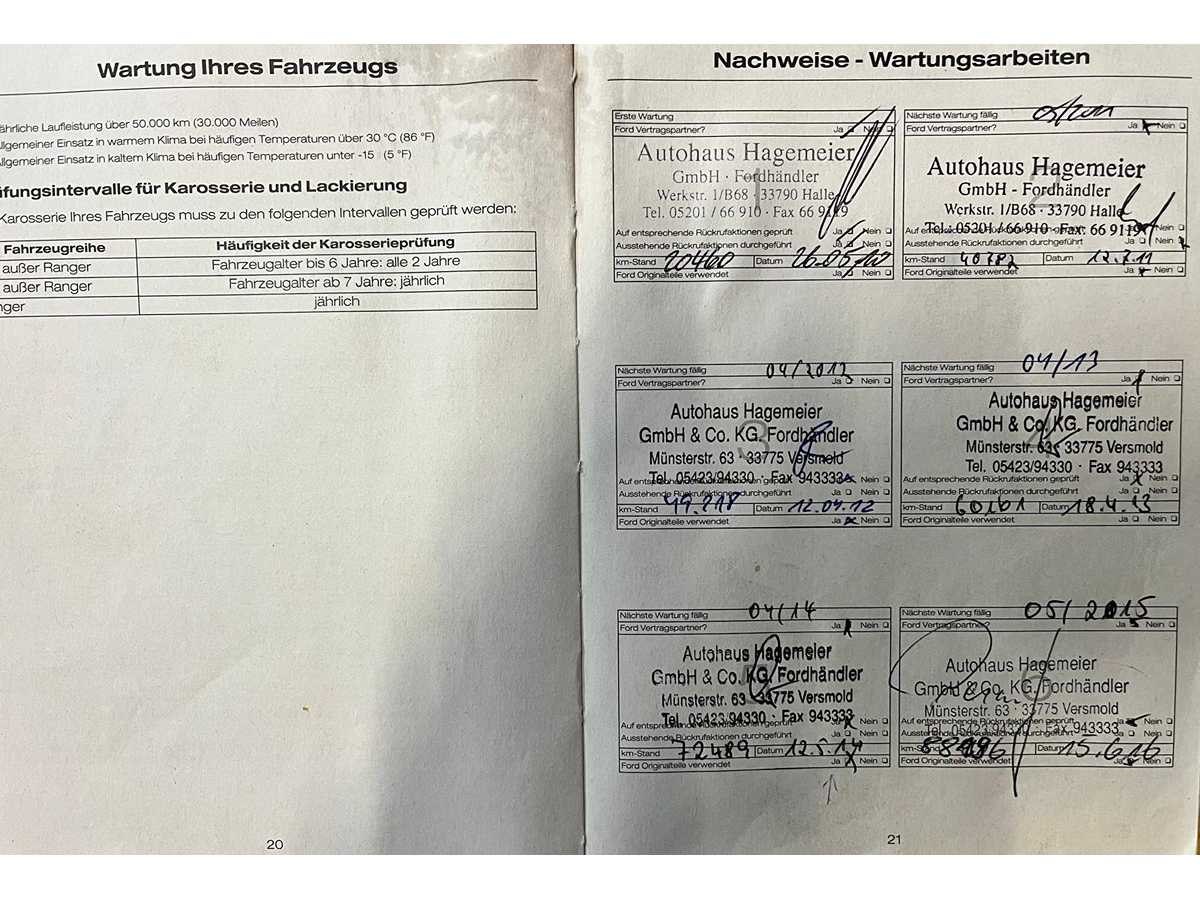 Wartung Ihres Fahrzeugs
ährliche Laufleistung über 50.000 km (30.000 Meilen)
llgemeiner Einsatz in warmem Klima bei häufigen Temperaturen über 30 °C (86 °F)
llgemeiner Einsatz in kaltem Klima bei häufigen Temperaturen unter -15 (5 °F)
üfungsintervalle für Karosserie und Lackierung
Karosserie Ihres Fahrzeugs muss zu den folgenden Intervallen geprüft werden:
Fahrzeugreihe Häufigkeit der Karosserieprüfung
außer Ranger Fahrzeugalter bis 6 Jahre: alle 2 Jahre
außer Ranger Fahrzeugalter ab 7 Jahre: jährlich
nger jährlich
20
Nachweise - Wartungsarbeiten
Erste Wartung
Ford Vertragspartner? Ja Nein
Autohaus Hagemeier
GmbH · Fordhändler
Werkstr. 1/B68 · 33790 Halle
Tel. 05201 / 66 910 · Fax 66 9119
Auf entsprechende Rückrufaktionen geprüft Ja Nein
Ausstehende Rückrufaktionen durchgeführt Ja Nein
km-Stand 20460 Datum 26.05.10
Ford Originalteile verwendet Ja Nein
Nächste Wartung fällig
Ford Vertragspartner? Ja Nein
Autohaus Hagemeier
GmbH - Fordhändler
Werkstr. 1/B68 · 33790 Halle
Tel. 05201 / 66 910 - Fax: 66 9119
Auf entsprechende Rückrufaktionen geprüft Ja Nein
Ausstehende Rückrufaktionen durchgeführt Ja Nein
km-Stand 40782 Datum 12.7.11
Ford Originalteile verwendet Ja Nein
Nächste Wartung fällig 04/2012
Ford Vertragspartner? Ja Nein
3
Autohaus Hagemeier
GmbH & Co. KG, Fordhändler
Münsterstr. 63 · 33775 Versmold
Tel. 05423/94330 · Fax 943333
Auf entsprechende Rückrufaktionen geprüft Nein
Ausstehende Rückrufaktionen durchgeführt Ja Nein
km-Stand 49.218 Datum 12.04.12
Ford Originalteile verwendet Ja Nein
Nächste Wartung fällig 04/13
Ford Vertragspartner? Ja Nein
Autohaus Hagemeier
GmbH & Co. KG, Fordhändler
Münsterstr. 63 · 33775 Versmold
Tel. 05423/94330 · Fax 943333
Auf entsprechende Rückrufaktionen geprüft Ja Nein
Ausstehende Rückrufaktionen durchgeführt Ja Nein
km-Stand 60161 Datum 18.4.13
Ford Originalteile verwendet Ja Nein
Nächste Wartung fällig 04/14
Ford Vertragspartner? Ja Nein
Autohaus Hagemeier
GmbH & Co. KG, Fordhändler
Münsterstr. 63 · 33775 Versmold
Tel. 05423/94330 · Fax 943333
Auf entsprechende Rückrufaktionen geprüft Nein
Ausstehende Rückrufaktionen durchgeführt Ja Nein
km-Stand 72489 Datum 12.5.14
Ford Originalteile verwendet Ja Nein
Nächste Wartung fällig 05/2015
Ford Vertragspartner? Ja Nein
6
Autohaus Hagemeier
GmbH & Co. KG, Fordhändler
Münsterstr. 63 · 33775 Versmold
Tel. 05423/94330 · Fax 943333
Auf entsprechende Rückrufaktionen geprüft Ja Nein
Ausstehende Rückrufaktionen durchgeführt Ja Nein
km-Stand Datum 15.6.16
Ford Originalteile verwendet Ja Nein
21